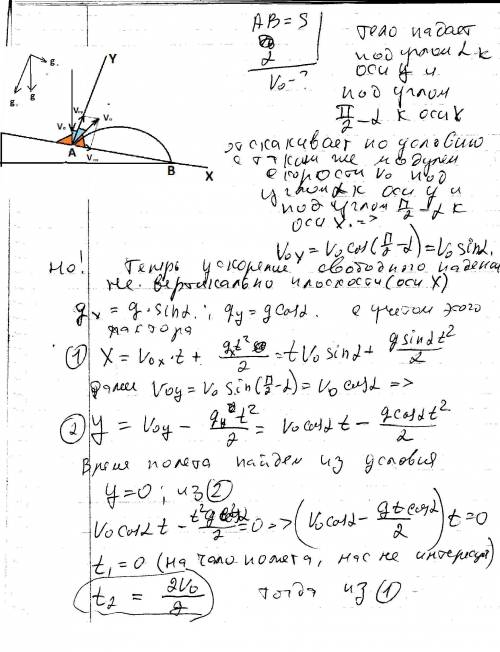 AB = S
α
V₀ - ?
тело падает
под углом α к
оси y и
под углом
π/2 - α к оси X
отскакивает по условию
с таким же модулем
скорости V₀ под
углом α к оси y и
под углом π/2 - α к
оси X. =>
V₀ₓ = V₀ cos(π/2 - α) = V₀ sinα.
Но! Теперь ускорение свободного падения
не вертикально плоскости (оси X)
gₓ = g · sinα; gy = g cosα. с учетом этого
фактора
① X = V₀ₓ · t + gₓt²/2 = t V₀ sinα + g sinα t²/2
далее V₀y = V₀ sin(π/2 - α) = V₀ cosα =>
② y = V₀y - gy t²/2 = V₀ cosα t - g cosα t²/2
Время полета найдем из условия
y = 0; из ②
V₀ cosα t - t² g cosα/2 = 0 => (V₀ cosα - g t cosα/2) t = 0
t₁ = 0 (начало полета, нас не интересует)
t₂ = 2V₀/g тогда из ①
Y
g
g
g
V₀
V₀
A
B
X